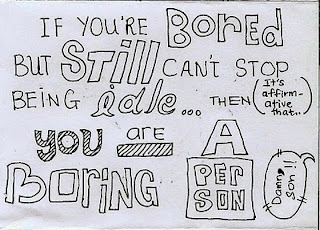 IF YOU'RE BORED
BUT STILL CAN'T STOP
BEING idle... THEN (It's affirm-
ative that..)
you are A
BORING PER
SON
Damn
son!!